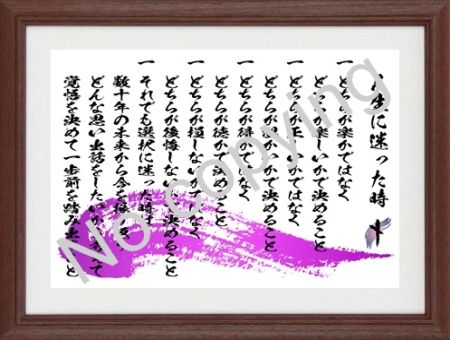 人生に迷った時
一 どちらが楽かではなく
どちらが楽しいかで決めること
一 どちらが正しいかではなく
どちらが温かいかで決めること
一 どちらが得かではなく
どちらが徳かで決めること
一 どちらが損しないかではなく
どちらが後悔しないかで決めること
一 それでも選択に迷った時は
数十年の未来から今を
どんな思い出話をしたいかを考えて
覚悟を決めて一歩前を踏み出すこと
No copying